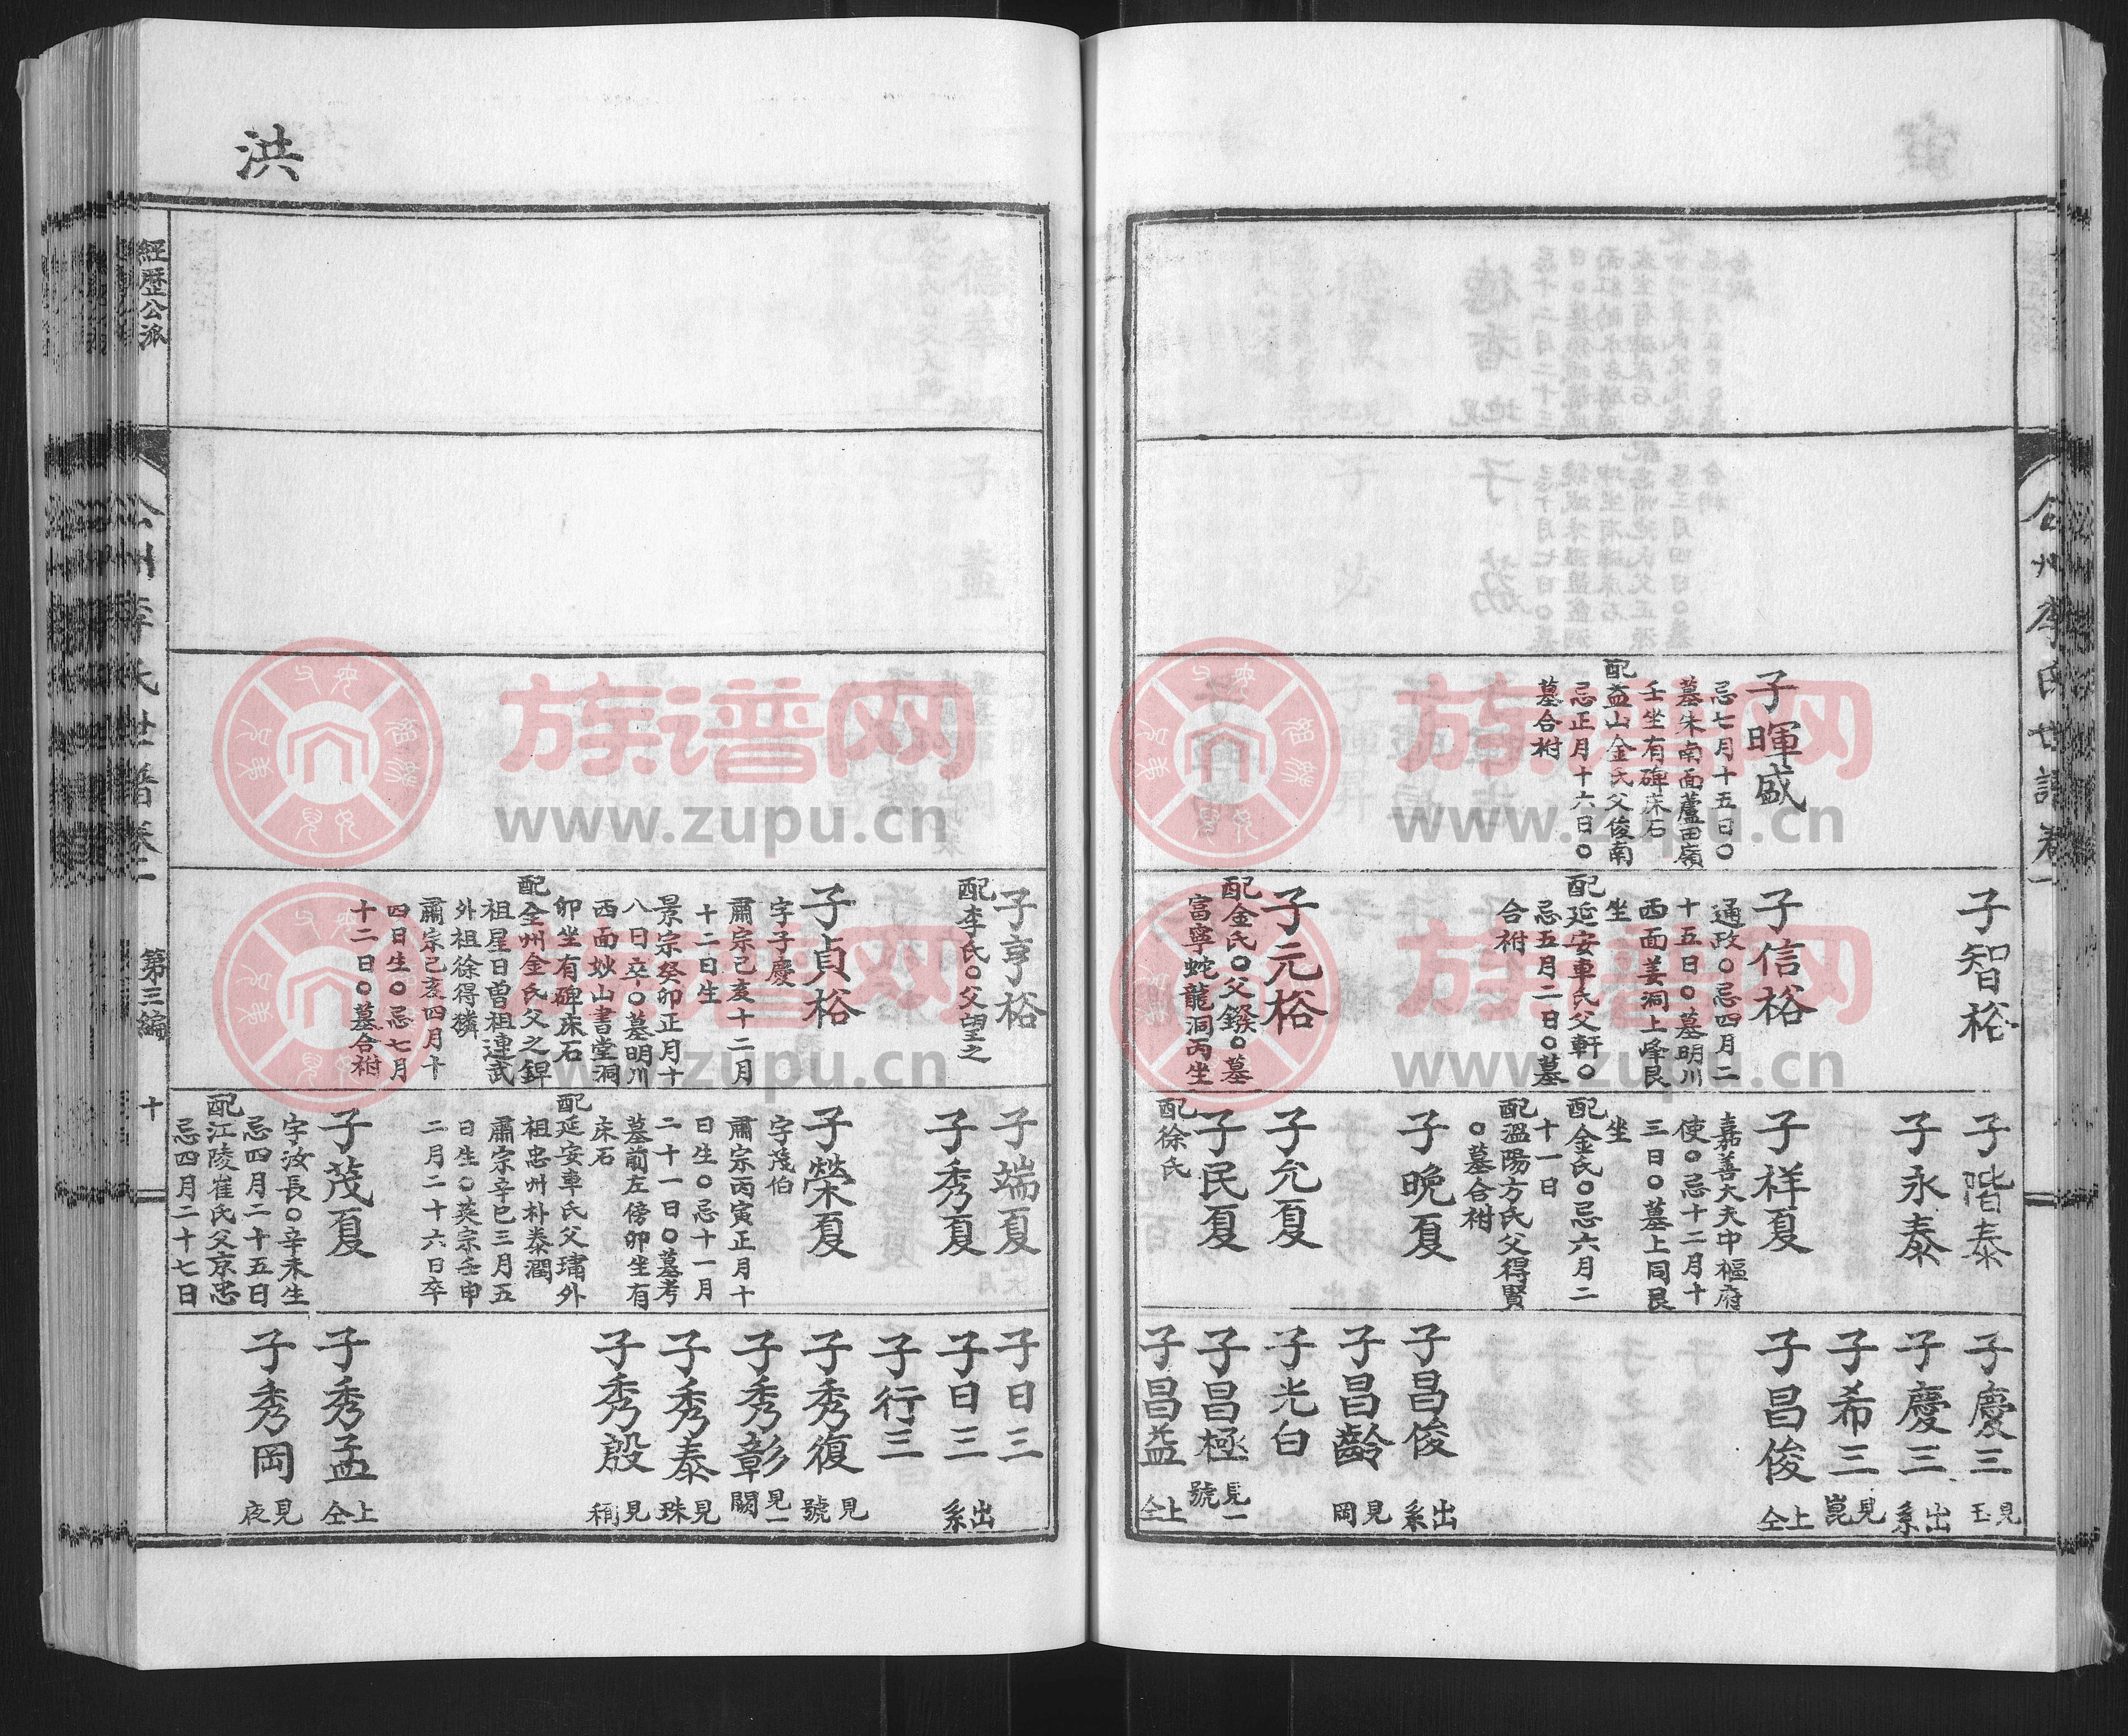 公州李氏世譜卷一
子暉盛
忌七月十五日○
墓朱南面蘆田嶺
壬坐有碑床石
配益山金氏父俊南
忌正月十六日○
墓合祔
子智裕
子信裕
通政○忌四月二
十五日○墓明川
西面姜洞上峰艮
坐
配延安車氏父軒○
忌五月二日○墓
合祔
子元裕
配金氏○父鏺○墓
富寧蛇龍洞丙坐
子階泰
子永泰
子祥夏
嘉善大夫中樞府
使○忌十二月十
三日○墓上同艮
坐
配金氏○忌六月二
十一日
配溫陽方氏父得賢
○墓合祔
子晚夏
子允夏
子民夏
配徐氏
子慶三 見玉
子慶三 出系
子希三 見崑
子昌俊 上仝
子昌俊 出系
子昌齡 見岡
子光白
子昌極 見一號
子昌益 上仝
洪
子亨裕
配李氏○父望之
子貞裕
字子慶
肅宗己亥十二月
十二日生
景宗癸卯正月十
八日卒○墓明川
西面妙山書堂洞
卯坐有碑床石
配全州金氏父之銲
祖星日曾祖連武
外祖徐得獜
肅宗己亥四月十
四日生○忌七月
十二日○墓合祔
子端夏
子秀夏
子榮夏
字茂伯
肅宗丙寅正月十
日生○忌十一月
二十一日○墓考
墓前左傍卯坐有
床石
配延安車氏父璛外
祖忠州朴泰潤
肅宗辛巳三月五
日生○英宗壬申
二月二十六日卒
子茂夏
字汝長○辛未生
忌四月二十五日
配江陵崔氏父京忠
忌四月二十七日
子日三
子日三 出系
子行三
子秀復 見號
子秀彰 見一闕
子秀泰 見珠
子秀殷 見稱
子秀孟 上仝
子秀岡 見夜
經歷公派
公州李氏世譜卷一
第三編
十
族谱网
www.zupu.cn
族谱网
www.zupu.cn
族谱网
www.zupu.cn
族谱网
www.zupu.cn